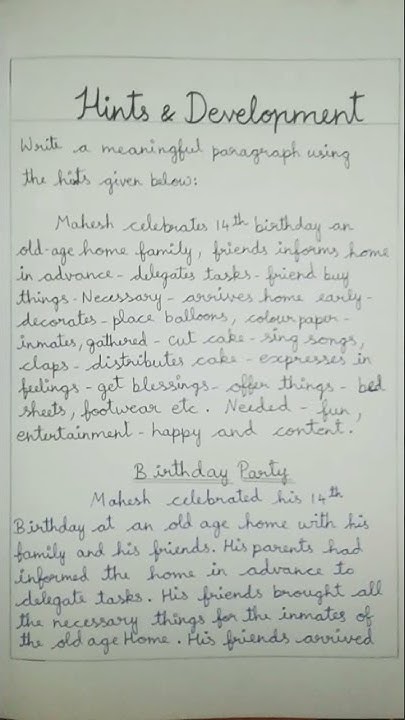 Hints & Development
Write a meaningful paragraph using
the hints given below:
Mahesh celebrates 14th birthday an
old-age home family, friends informs home
in advance - delegates tasks - friend buy
things - Necessary - arrives home early -
decorates - place balloons, colour paper -
inmates, gathered - cut cake - sing songs,
claps - distributes cake - expresses in
feelings - get blessings - offer things - bed
sheets, footwear etc. Needed - fun,
entertainment - happy and content.
Birthday Party
Mahesh celebrated his 14th
Birthday at an old age home with his
family and his friends. His parents had
informed the home in advance to
delegate tasks. His friends brought all
the necessary things for the inmates of
the old age Home. His friends arrived